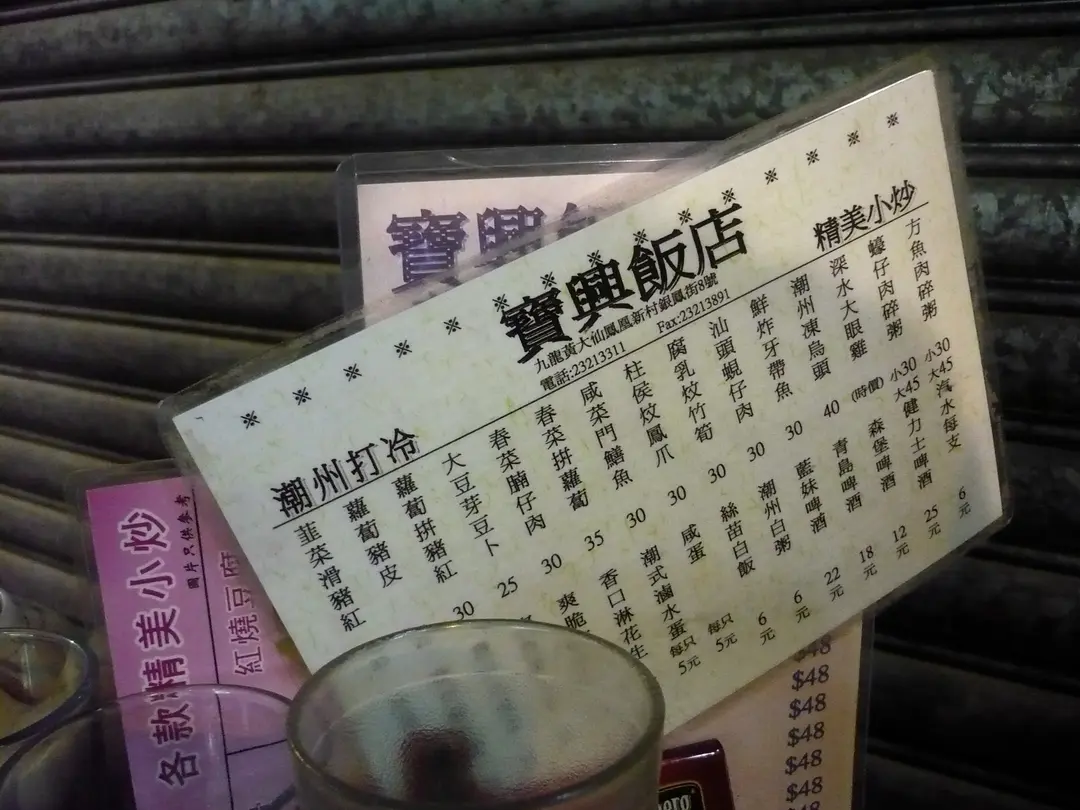 寶興
※ ※ ※ ※ ※ ※ ※ ※ ※ ※ ※ ※ ※ ※
寶興飯店
九龍黃大仙鳳凰新村銀鳳街8號
電話:23213311 Fax:23213891
精美小炒
潮州打冷
方魚肉碎粥 小30 大45
蠔仔肉碎粥 小30 大45
深水大眼雞 (時價)
潮州凍烏頭 40
鮮炸牙帶魚 30
汕頭蜆仔肉 30
腐乳炆竹筍 30
柱侯炆鳳爪 30
咸菜門鱔魚 30
春菜拼蘿蔔 35
春菜腩仔肉 30
大豆芽豆卜 25
蘿蔔拼豬紅 30
蘿蔔豬皮
韮菜滑豬紅
汽水每支 6元
健力士啤酒 25元
森堡啤酒 12元
青島啤酒 18元
藍妹啤酒 22元
潮州白粥 6元
絲苗白飯 6元
咸蛋 每只5元
潮式滷水蛋 每只5元
香口淋花生
爽脆
各款精美小炒
圖片只供參考
紅燒豆腐
$48
$48
$48
$48
$48
$48